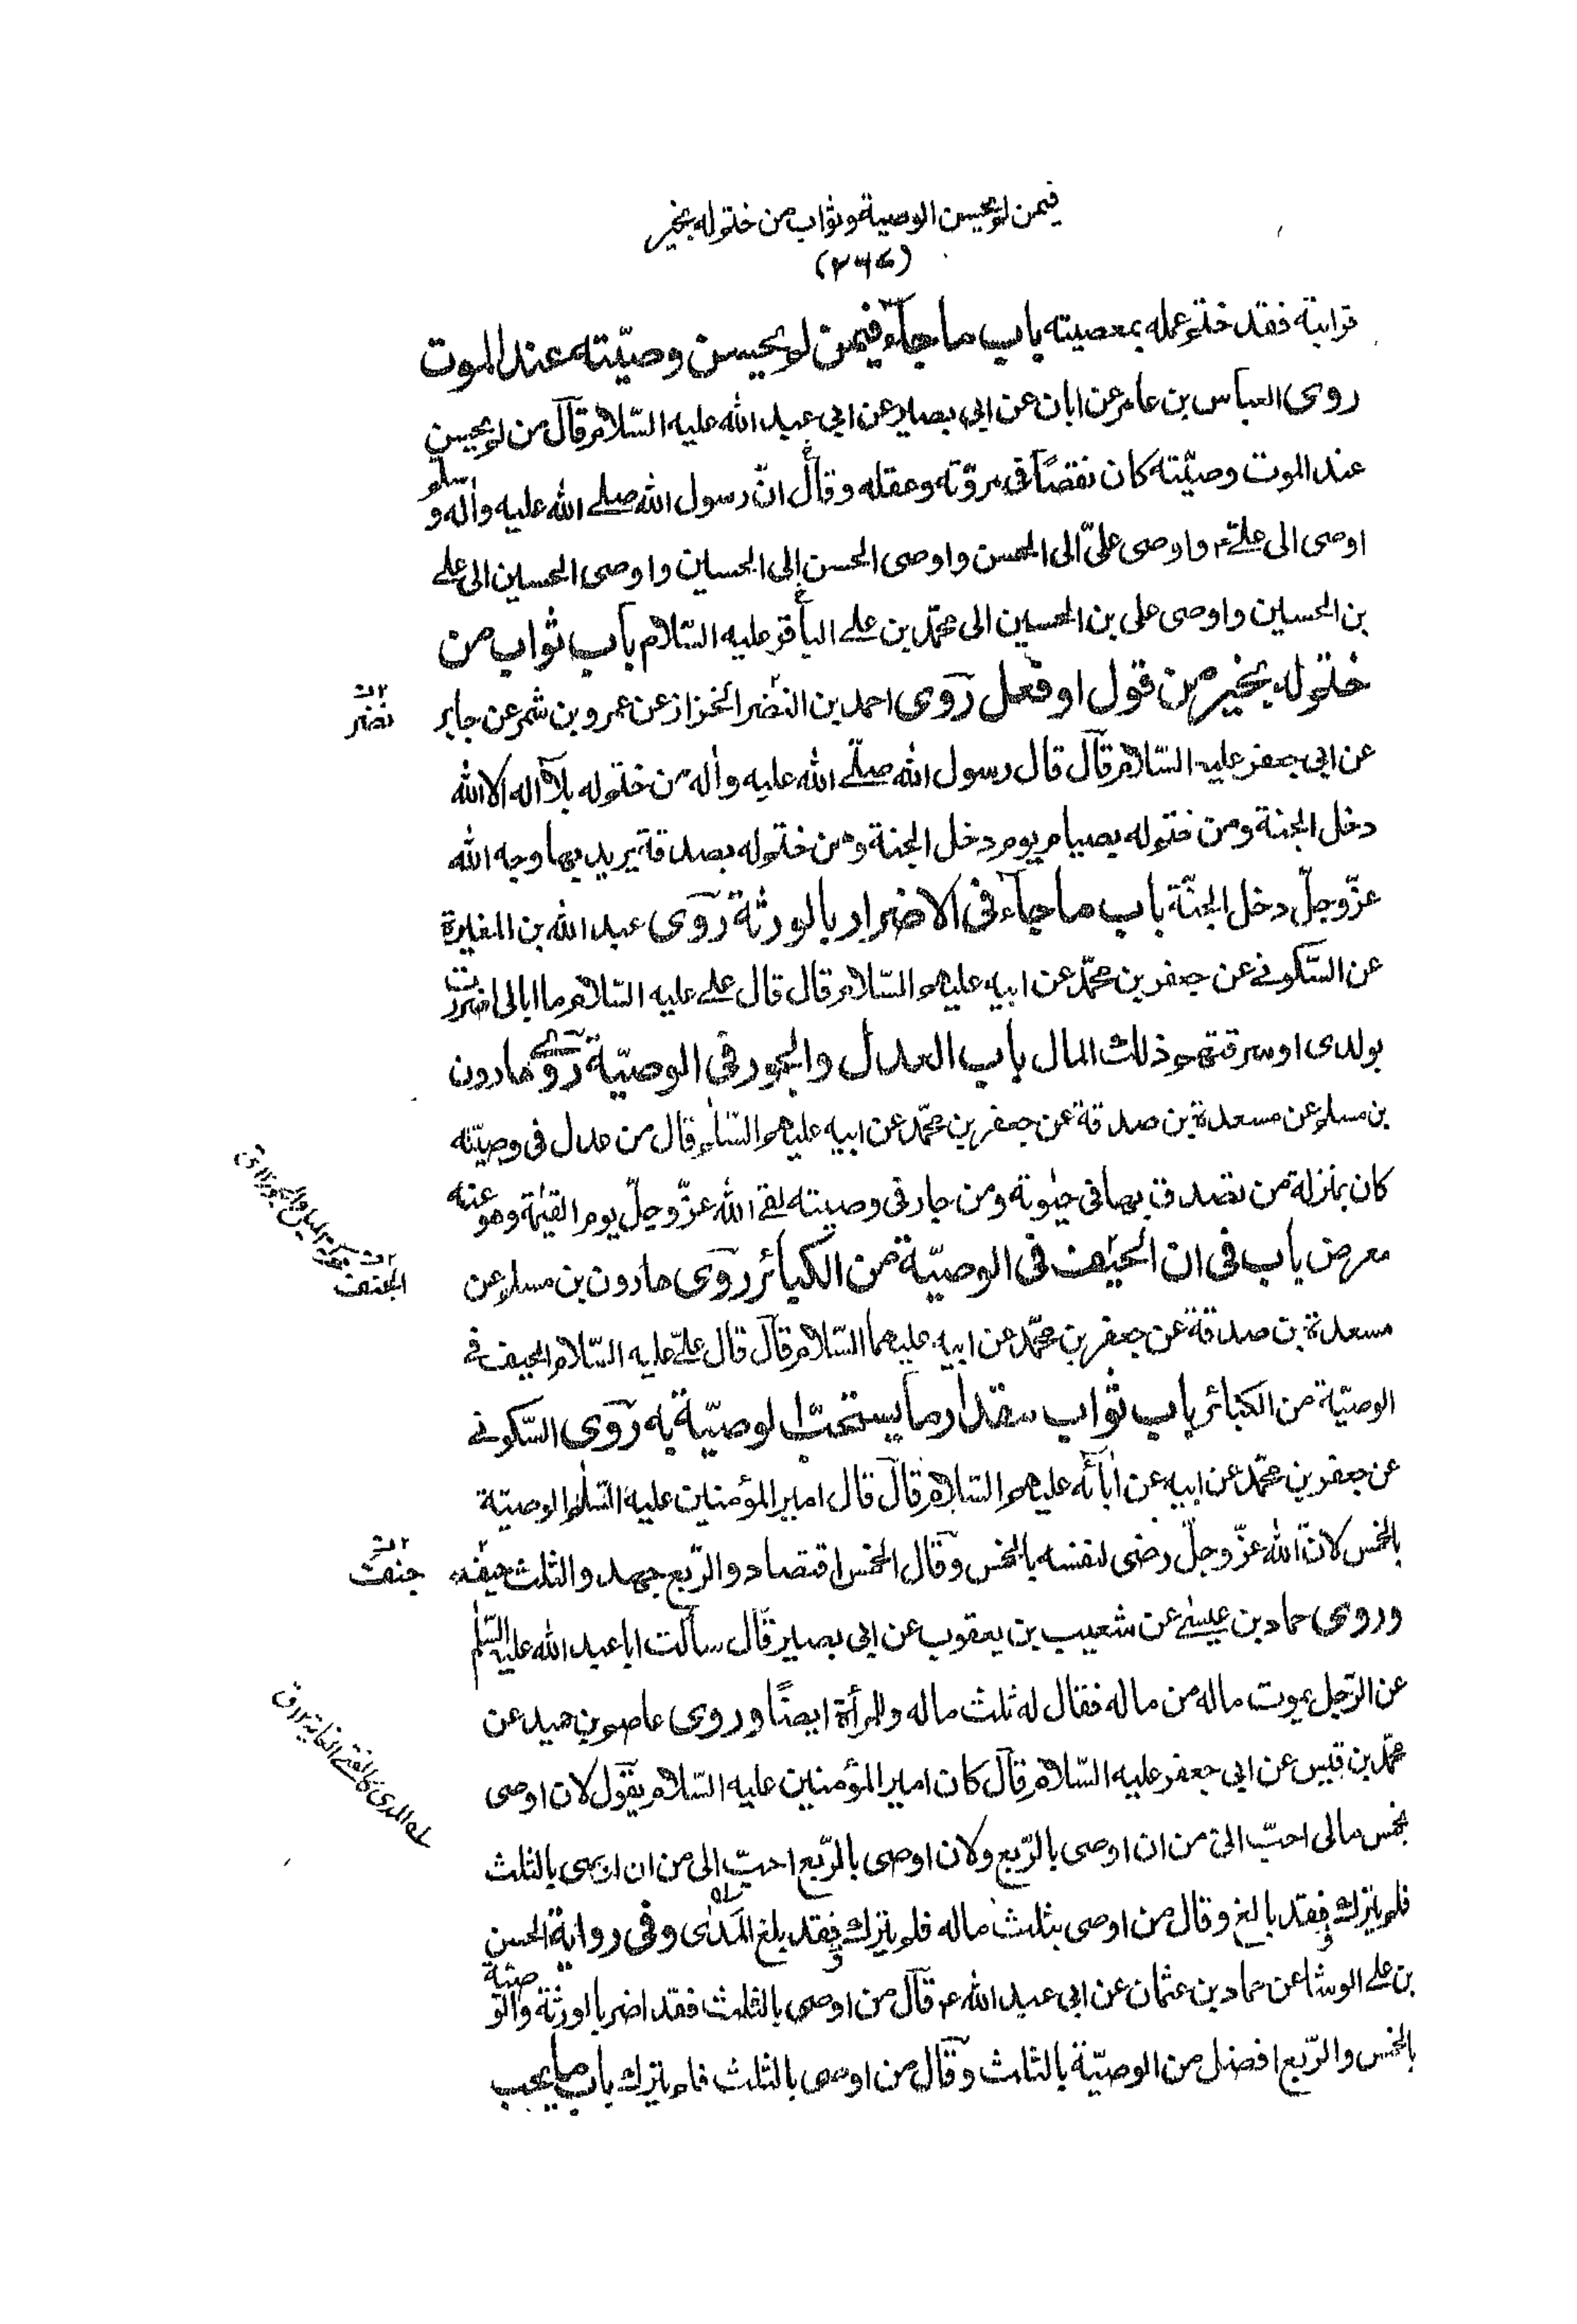 فيمن لم يحسن الوصية وثواب من ختم له بخير
قرابته فقد ختم عمله بمعصيته باب ما جآء فيمن لم يحسن وصيّته عند الموت
روى العباس بن عامر عن ابان عن ابى بصير عن ابي عبد الله عليه السّلام قآل من لم يحسن
عند الموت وصيّته كان نقصًا فى مروّته وعقله وقالؑ انّ رسول الله صلے الله عليه واٰله و سلم
اوصى الى علےّؑ واوصى علىّ الى الحسن واوصى الحسن الى الحسين واوصى الحسين الى علے
بن الحسين واوصى على بن الحسين الى محمّد بن علے الباقرؑ عليه السّلام باب ثواب من
ختم له بخير من قول او فعل روى احمد بن النضر الخزاز عن عمرو بن شمر عن جابر
نضر
عن ابى جعفر عليه السّلام قآل قال رسول الله صلّے الله عليه واٰله من ختم له بلآ اله الا الله
دخل الجنة ومن ختم له بصيام يوم دخل الجنة ومن ختم له بصدقة يريد بها وجه الله
عزّوجلّ دخل الجنّة باب ما جآء فى الاضرار بالورثة روى عبد الله بن المغيرة
عن السّكونے عن جعفر بن محمّد عن ابيه عليهم السّلام قال قال علے عليه السّلام ما ابالى اضررت
بولدى او سرقتهم ذلك المال باب العدل والجور فى الوصيّة روى هارون
بن مسلم عن مسعدة بن صدقة عن جعفر بن محمّد عن ابيه عليهم السّلٰم قال من عدل فى وصيّته
كان بمنزلة من تصدق بها فى حيٰوته ومن جار فى وصيته لقے الله عزّوجلّ يوم القيٰمة وهو عنه
معرض باب فى ان الحيف فى الوصيّة من الكبائر روى هارون بن مسلم عن
الجنف
مسعدة بن صدقة عن جعفر بن محمّد عن ابيه عليهما السّلام قآل قال علےّ عليه السّلام الحيف فے
الوصيّة من الكبائر باب ثواب مقدار ما يستحبّ الوصيّة به روى السّكونے
عن جعفر بن محمّد عن ابيه عن اٰبائه عليهم السّلام قآل قال امير المؤمنين عليه السّلٰم الوصيّة
بالخمس لانّ الله عزّوجلّ رضى لنفسه بالخمس وقآل الخمس اقتصاد والرّبع جهد والثلث حيف
جنف
وروى حماد بن عيسٰے عن شعيب بن يعقوب عن ابى بصير قآل سالت ابا عبد الله عليه السّلٰم
عن الرّجل يموت ماله من ماله فقال له ثلث ماله وللمرأة ايضًا وروى عاصم بن حميد عن
محمّد بن قيس عن ابى جعفر عليه السّلام قآل كان امير المؤمنين عليه السّلام يقول لان اوصى
بخمس مالى احبّ الىّ من ان اوصى بالرّبع ولان اوصى بالرّبع احبّ الى من ان اوصى بالثلث
فلم يترك فقد بالغ وقال من اوصى بثلث ماله فلم يترك فقد بلغ المدٰى وفى رواية الحسن
بن علے الوشا عن حماد بن عثمان عن ابى عبد الله ع قآل من اوصى بالثلث فقد اضر بالورثة والوصيّة
بالخمس والرّبع افضل من الوصيّة بالثلث وقآل من اوصى بالثلث فلم يترك باب ما يجب